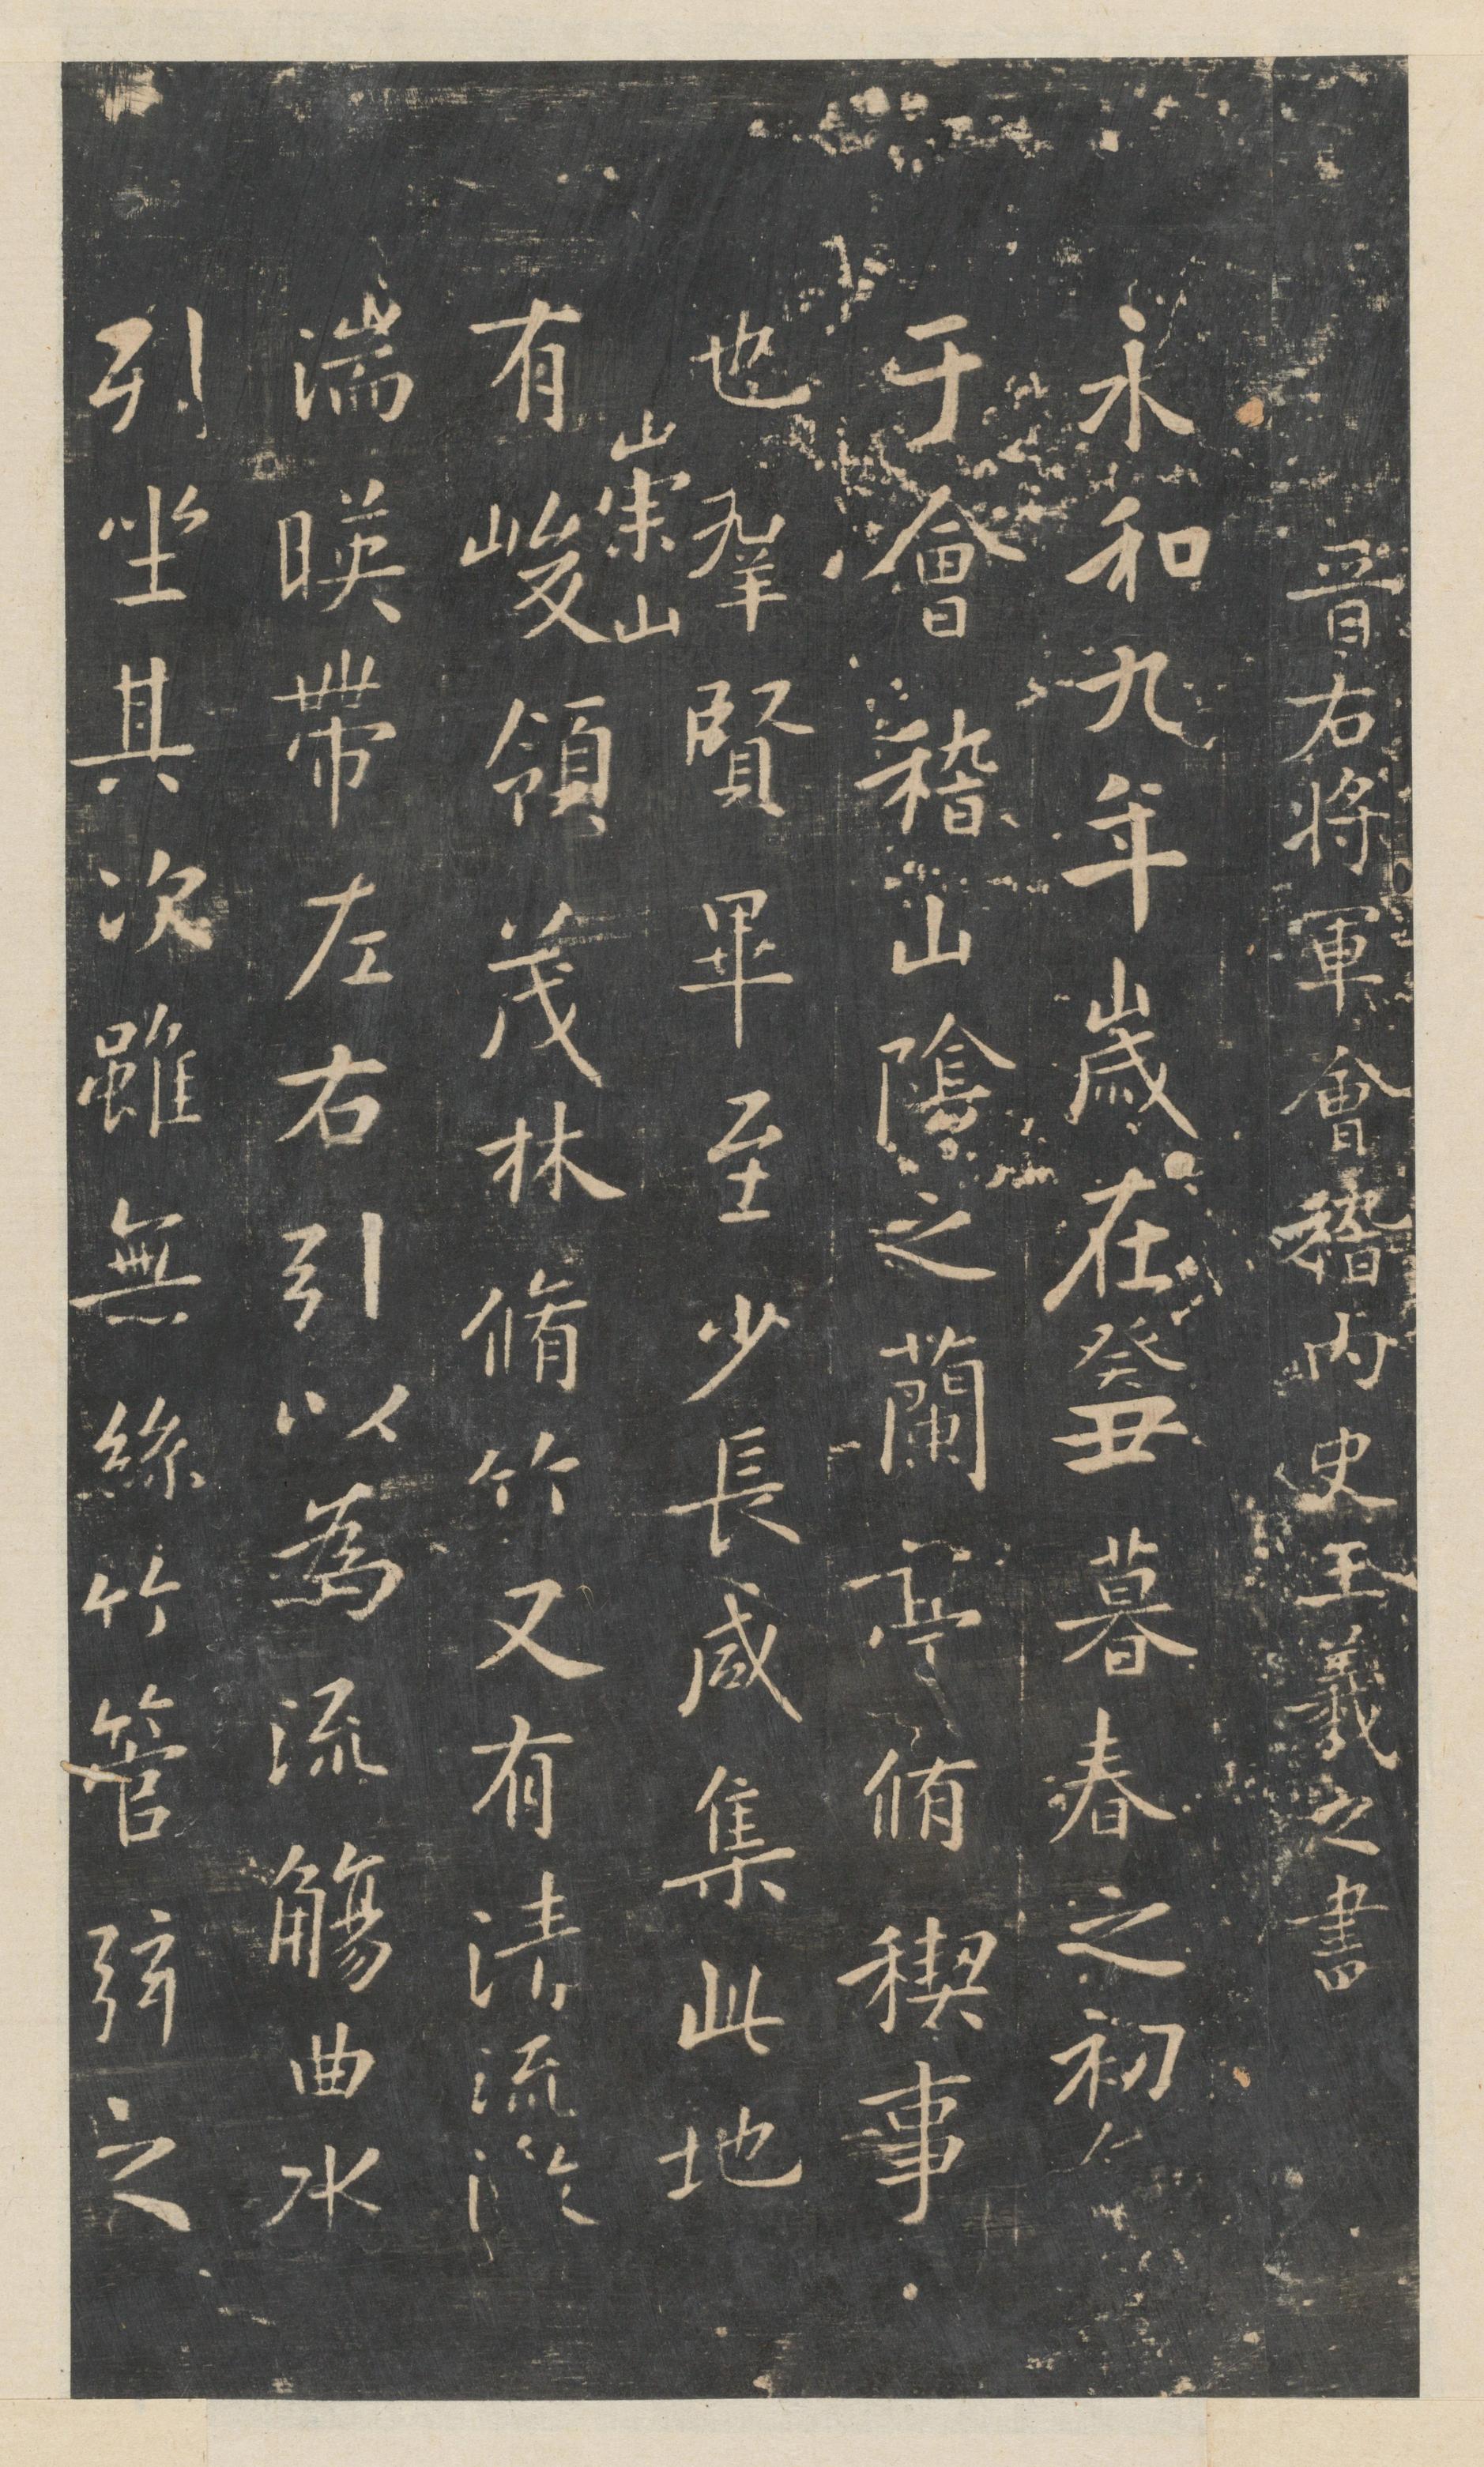 晉右將軍會稽內史王羲之書
永和九年歲在癸丑暮春之初
于會稽山陰之蘭亭脩稧事
也羣賢畢至少長咸集此地
有崇山峻領茂林脩竹又有清流激
湍暎帶左右引以為流觴曲水
列坐其次雖無絲竹管弦之